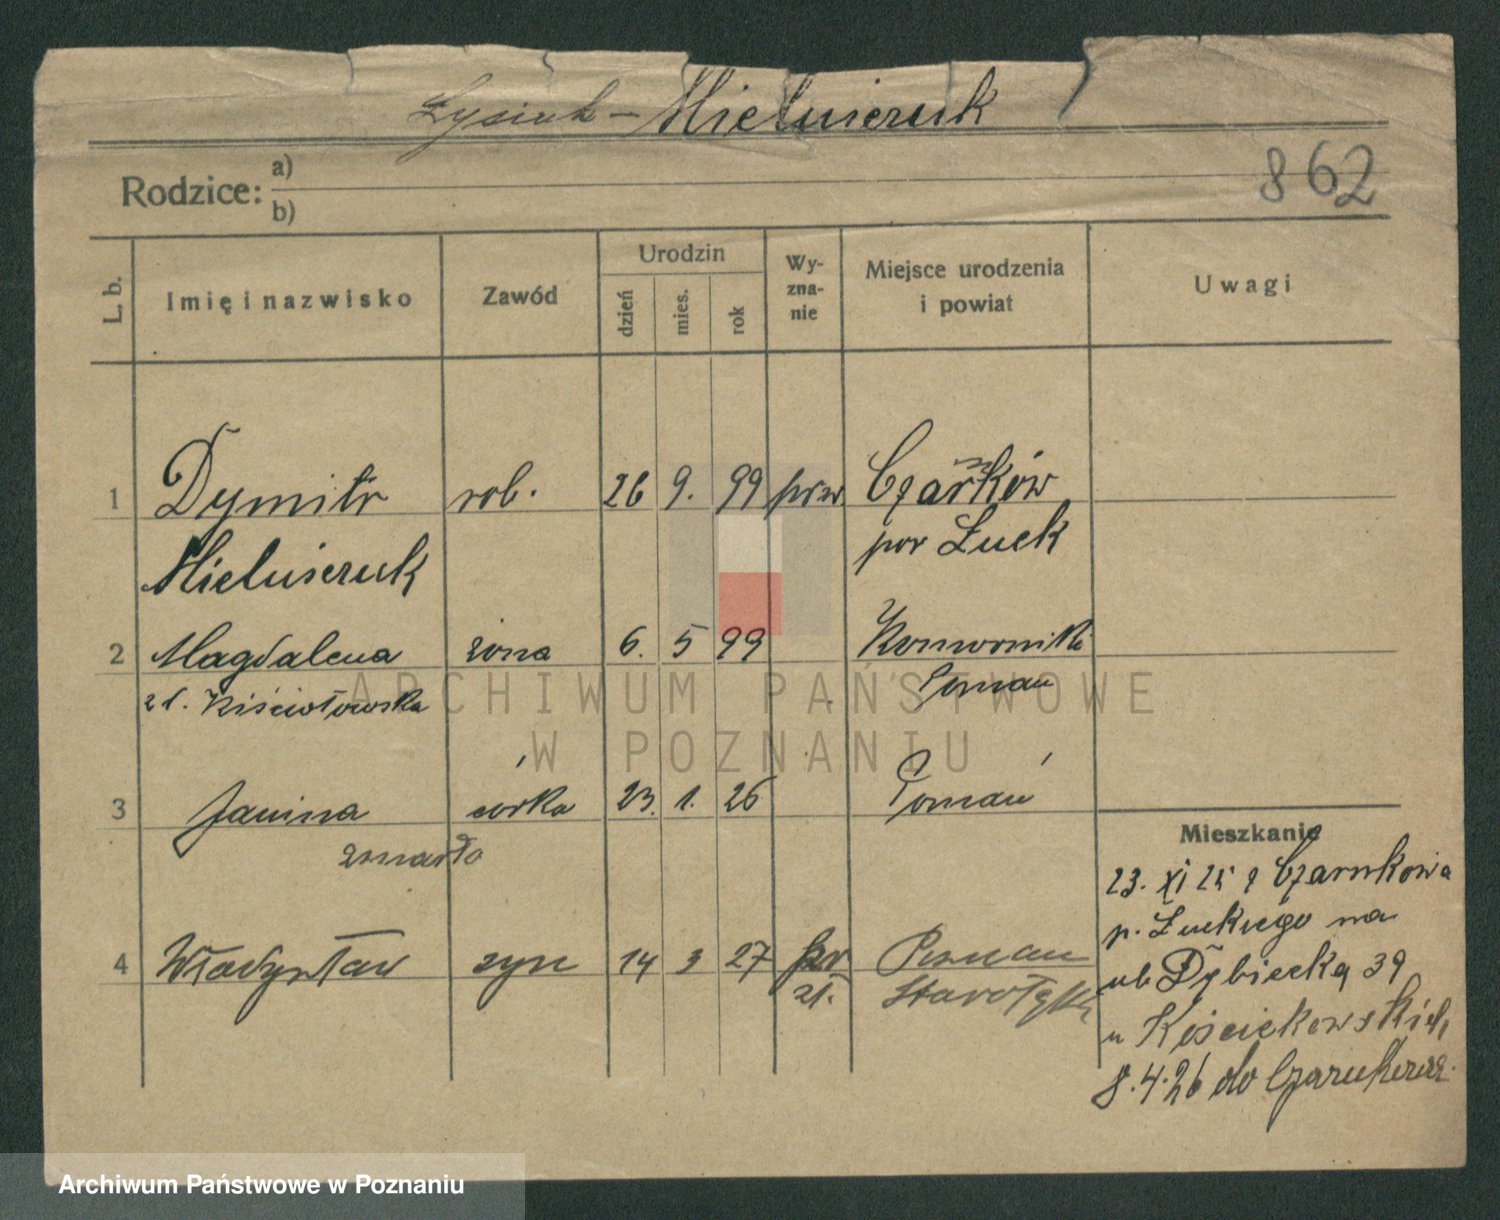 Łysiak - Mielniczuk
862
Rodzice: a)
b)
L. b.
Imię i nazwisko
Zawód
Urodzin
dzień
mies.
rok
Wy-
zna-
nie
Miejsce urodzenia
i powiat
Uwagi
1 Dymitr rob. 26 9. 99 prw. Czarków
Mielniczuk pow Łuck
2 Magdalena żona 6. 5 99 Komorniki
Poznań
3 Janina córka 23. 1. 26 Poznań
zmarła
4 Władysław syn 14 3 27 Poznań
Starołęka
Mieszkanie
23. XI 25 z Czarnkowa
p. Łuckiego na
ul. Dębiecką 39
u
8.4.26 do
ARCHIWUM PAŃSTWOWE
W POZNANIU
Archiwum Państwowe w Poznaniu